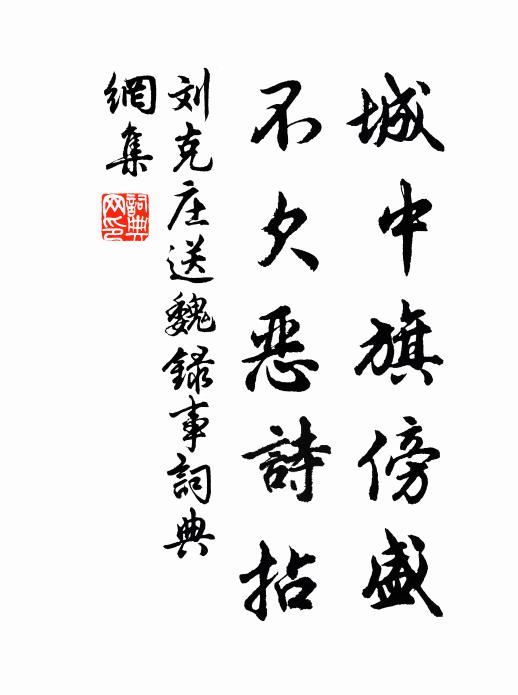 城中旗傍盛
不久恶詩拈
刘克庄送魏録事詞典
網集
詞典網印